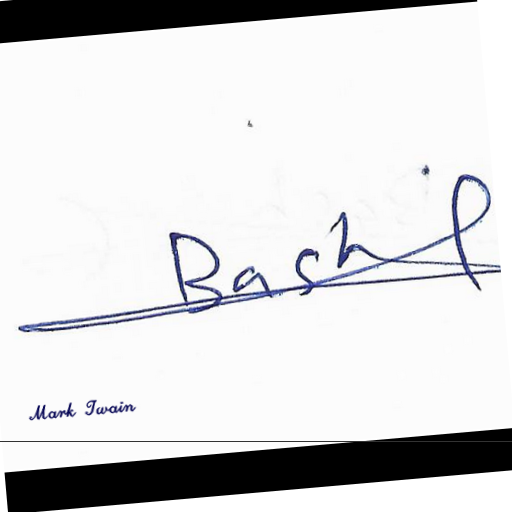 Bashir
Mark Twain